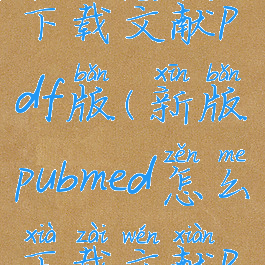 下载文献p
bǎn xīn bǎn
df版(新版
zěn me
pubmed怎么
xià zài wén xiàn
下载文献p